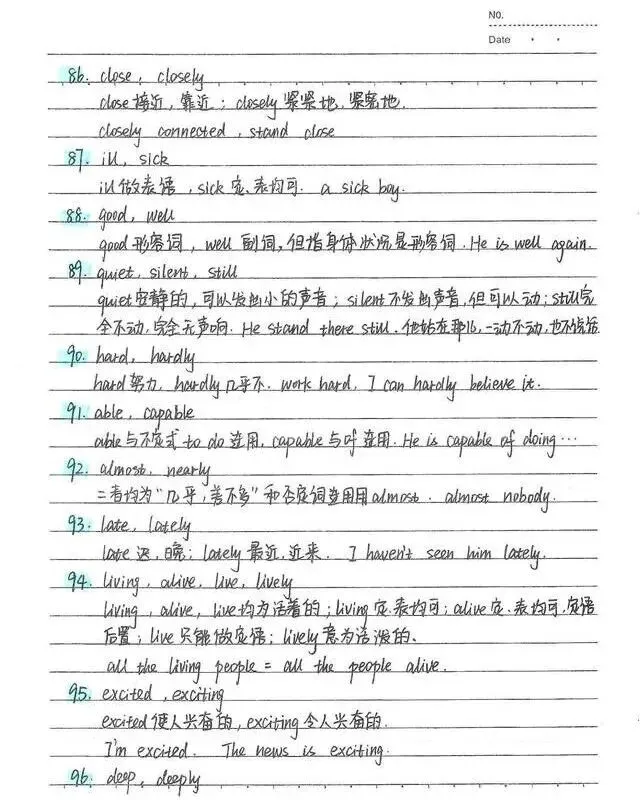 NO.
Date
86. close, closely
close 接近, 靠近; closely 紧紧地, 紧密地.
closely connected, stand close
87. ill, sick
ill 做表语, sick 定、表均可. a sick boy.
88. good, well
good 形容词, well 副词, 但指身体状况是形容词. He is well again.
89. quiet, silent, still
quiet 安静的, 可以发出小的声音; silent 不发出声音, 但可以动; still 完
全不动, 完全无声响. He stand there still. 他站在那儿, 一动不动, 也不说话
90. hard, hardly
hard 努力, hardly 几乎不. work hard, I can hardly believe it.
91. able, capable
able 与不定式 to do 连用, capable 与 of 连用. He is capable of doing…
92. almost, nearly
二者均为“几乎, 差不多”和否定词连用用 almost. almost nobody.
93. late, lately
late 迟, 晚; lately 最近, 近来. I haven't seen him lately.
94. living, alive, live, lively
living, alive, live 均为活着的; living 定、表均可; alive 定、表均可, 定语
后置; live 只能做定语; lively 意为活泼的.
all the living people = all the people alive.
95. excited, exciting
excited 使人兴奋的, exciting 令人兴奋的.
I'm excited. The news is exciting.
96. deep, deeply